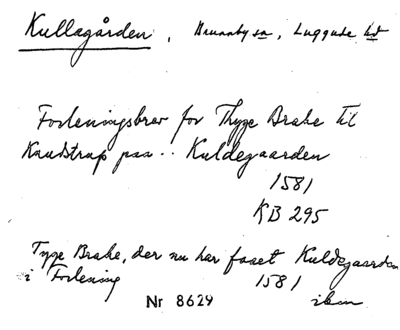 Kullagården, Brunnby sn, Luggude hd
Forleningsbrev for Thyge Brahe til
Knudstrup paa .. Kuldegaarden
1581
KB 295
Tyge Brahe, der nu har faaet Kuldegaarden
i Forlening 1581
Nr 8629 ibm